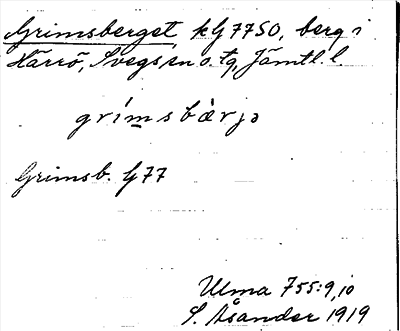 Grimsberget, k G 77 SO, berg i
Härrö, Svegs sn o. tg, Jämtl. l.
grímsbὰrjə
Grimsb. G 77
Ulma 755:9,10
S. Åsander 1919